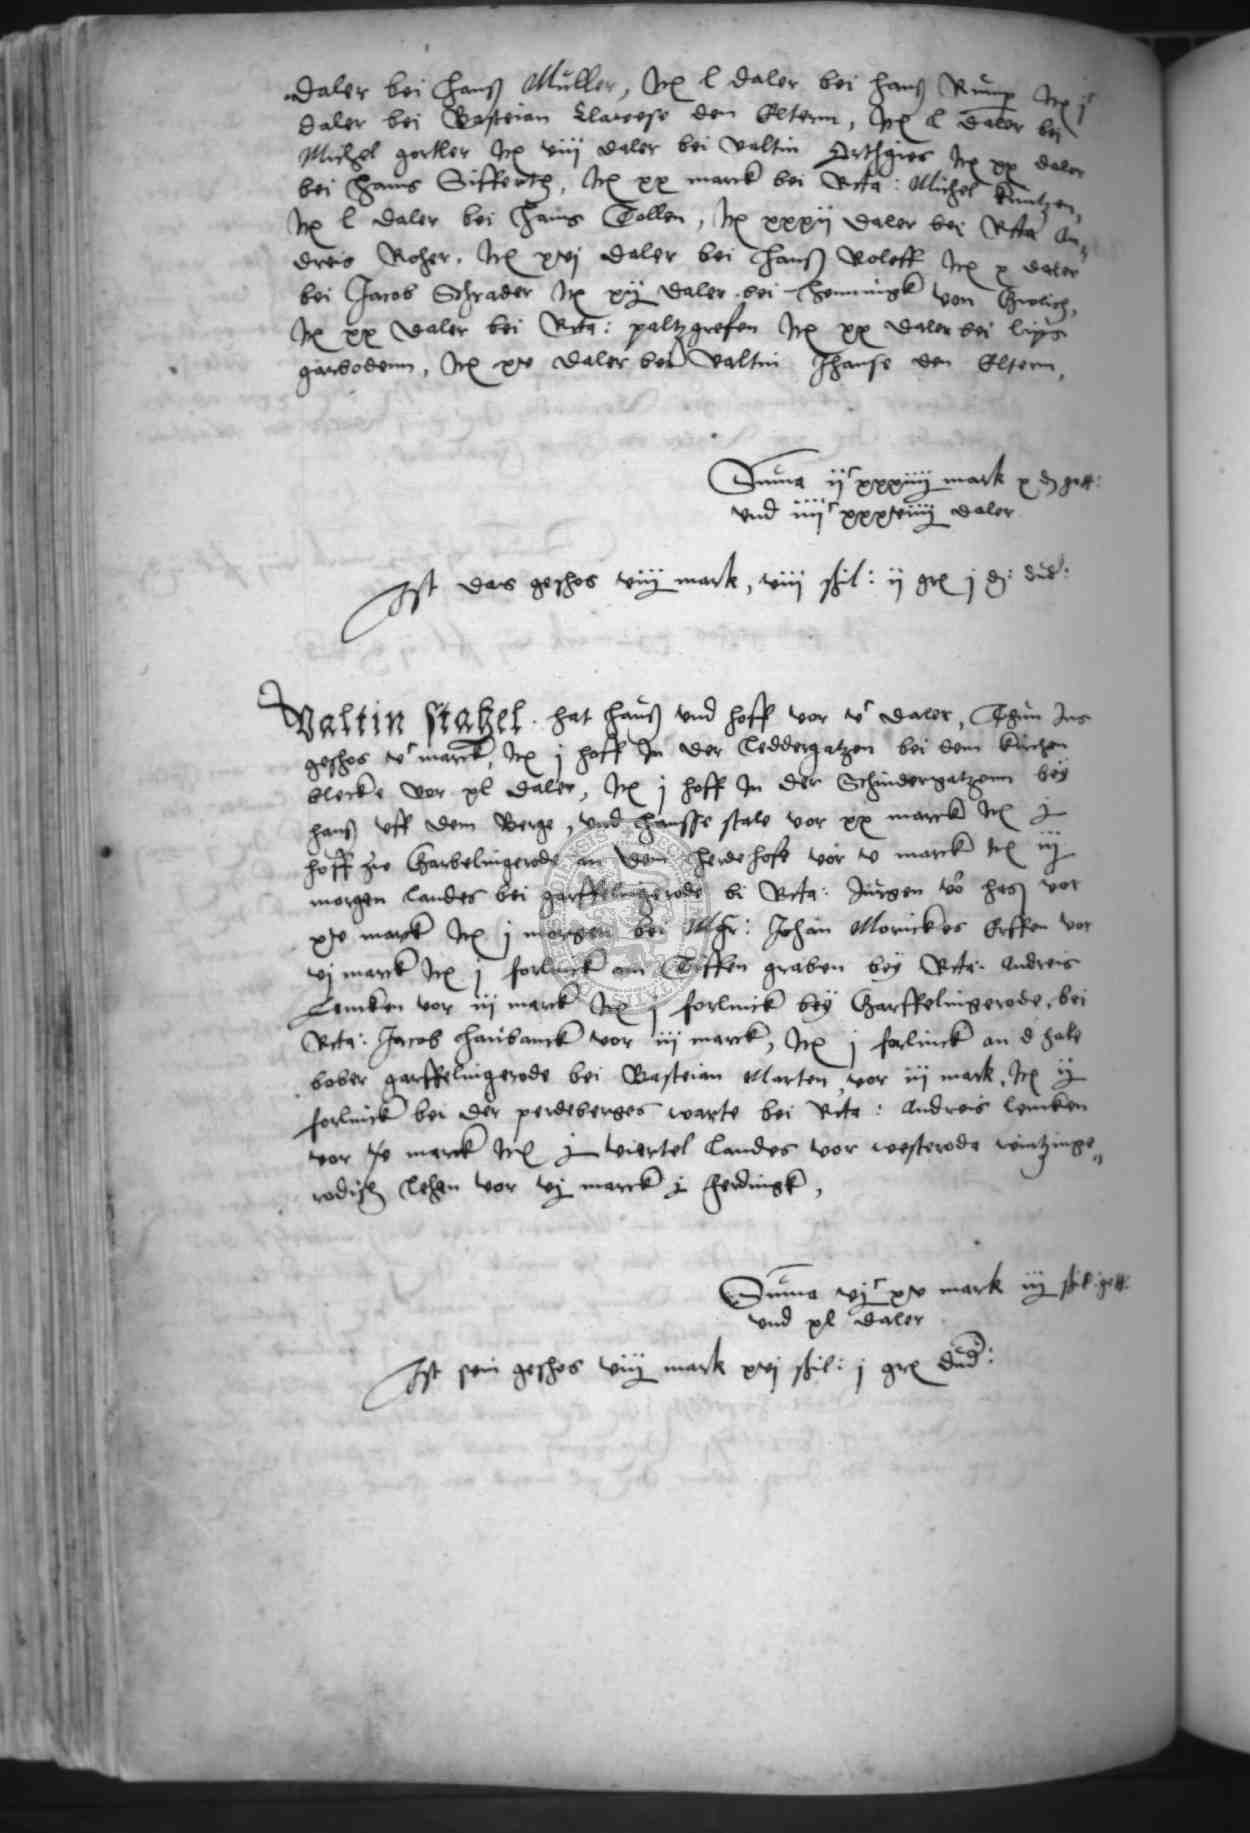 daler bei Hans Müller, Itē l daler bei hans Rump Itē jᶜ
daler bei Basteian Clawese den Eltern, Itē l daler bei
Michel gortler Itē viij daler bei valtin Itē xx daler
bei Hans Siffertz, Itē xx marck bei Rcta: Michel kuntzen,
Itē l daler bei Hans Tollen, Itē xxxij daler bei Rcta An-
dreis Roher, Itē xvj daler bei Hanß Roloff Itē x daler
bei Jacob Schrader Itē xij daler bei Hennningk von
Itē xx daler bei Rcta: paltzgrefen Itē xx daler bei
garbodenn, Itē xv daler bei valtin Ihanse den Eltern,
Suma ijᶜ xxxiiij mark x ₰ gott:
vnd iiijᶜ xxxviiij daler
Ist das geschos viij mark, viij schil: ij grē j ₰: dud:
Valtin stahel hat hauß vnd hoff vor vᶜ daler, Ins
geschos vᶜ marck, Itē j hoff In der leddergatzen bei dem kirchen
blecke vor xl daler, Itē j hoff In der Schindergatzenn bey
hanß vff dem Berge, vnd Hansse stale vor xx marck Itē j
hoff zue Garbelingerode an dem herde hofe vor v marck Itē iij
morgen landes bei garffelingerode bi Rcta: Jurgen vō hes vor
xv marck Itē j morgen bei Mgr: Johan Monickes Erffen vor
vj marck Itē j forlinck am Tiffen graben bey Rcta: Andreis
Lemken vor iij marck Itē j forlinck bey Garffelingerode, bei
Rcta: Jacob hanbanck vor iij marck, Itē j forlinck an d
bober garffelingerode bei Basteian Marten, vor iij mark, Itē ij
forlinck bei der perdeberges warte bei Rcta: Andreis lemken
vor marck Itē j viertel landes vor westerode wintzinge-
rodisch lehen vor vj marck j ferdingk,
Suma vjᶜ xv mark iij schil: gott:
vnd xl daler
Ist sein geschos viij mark xvj schil: j grē dud: